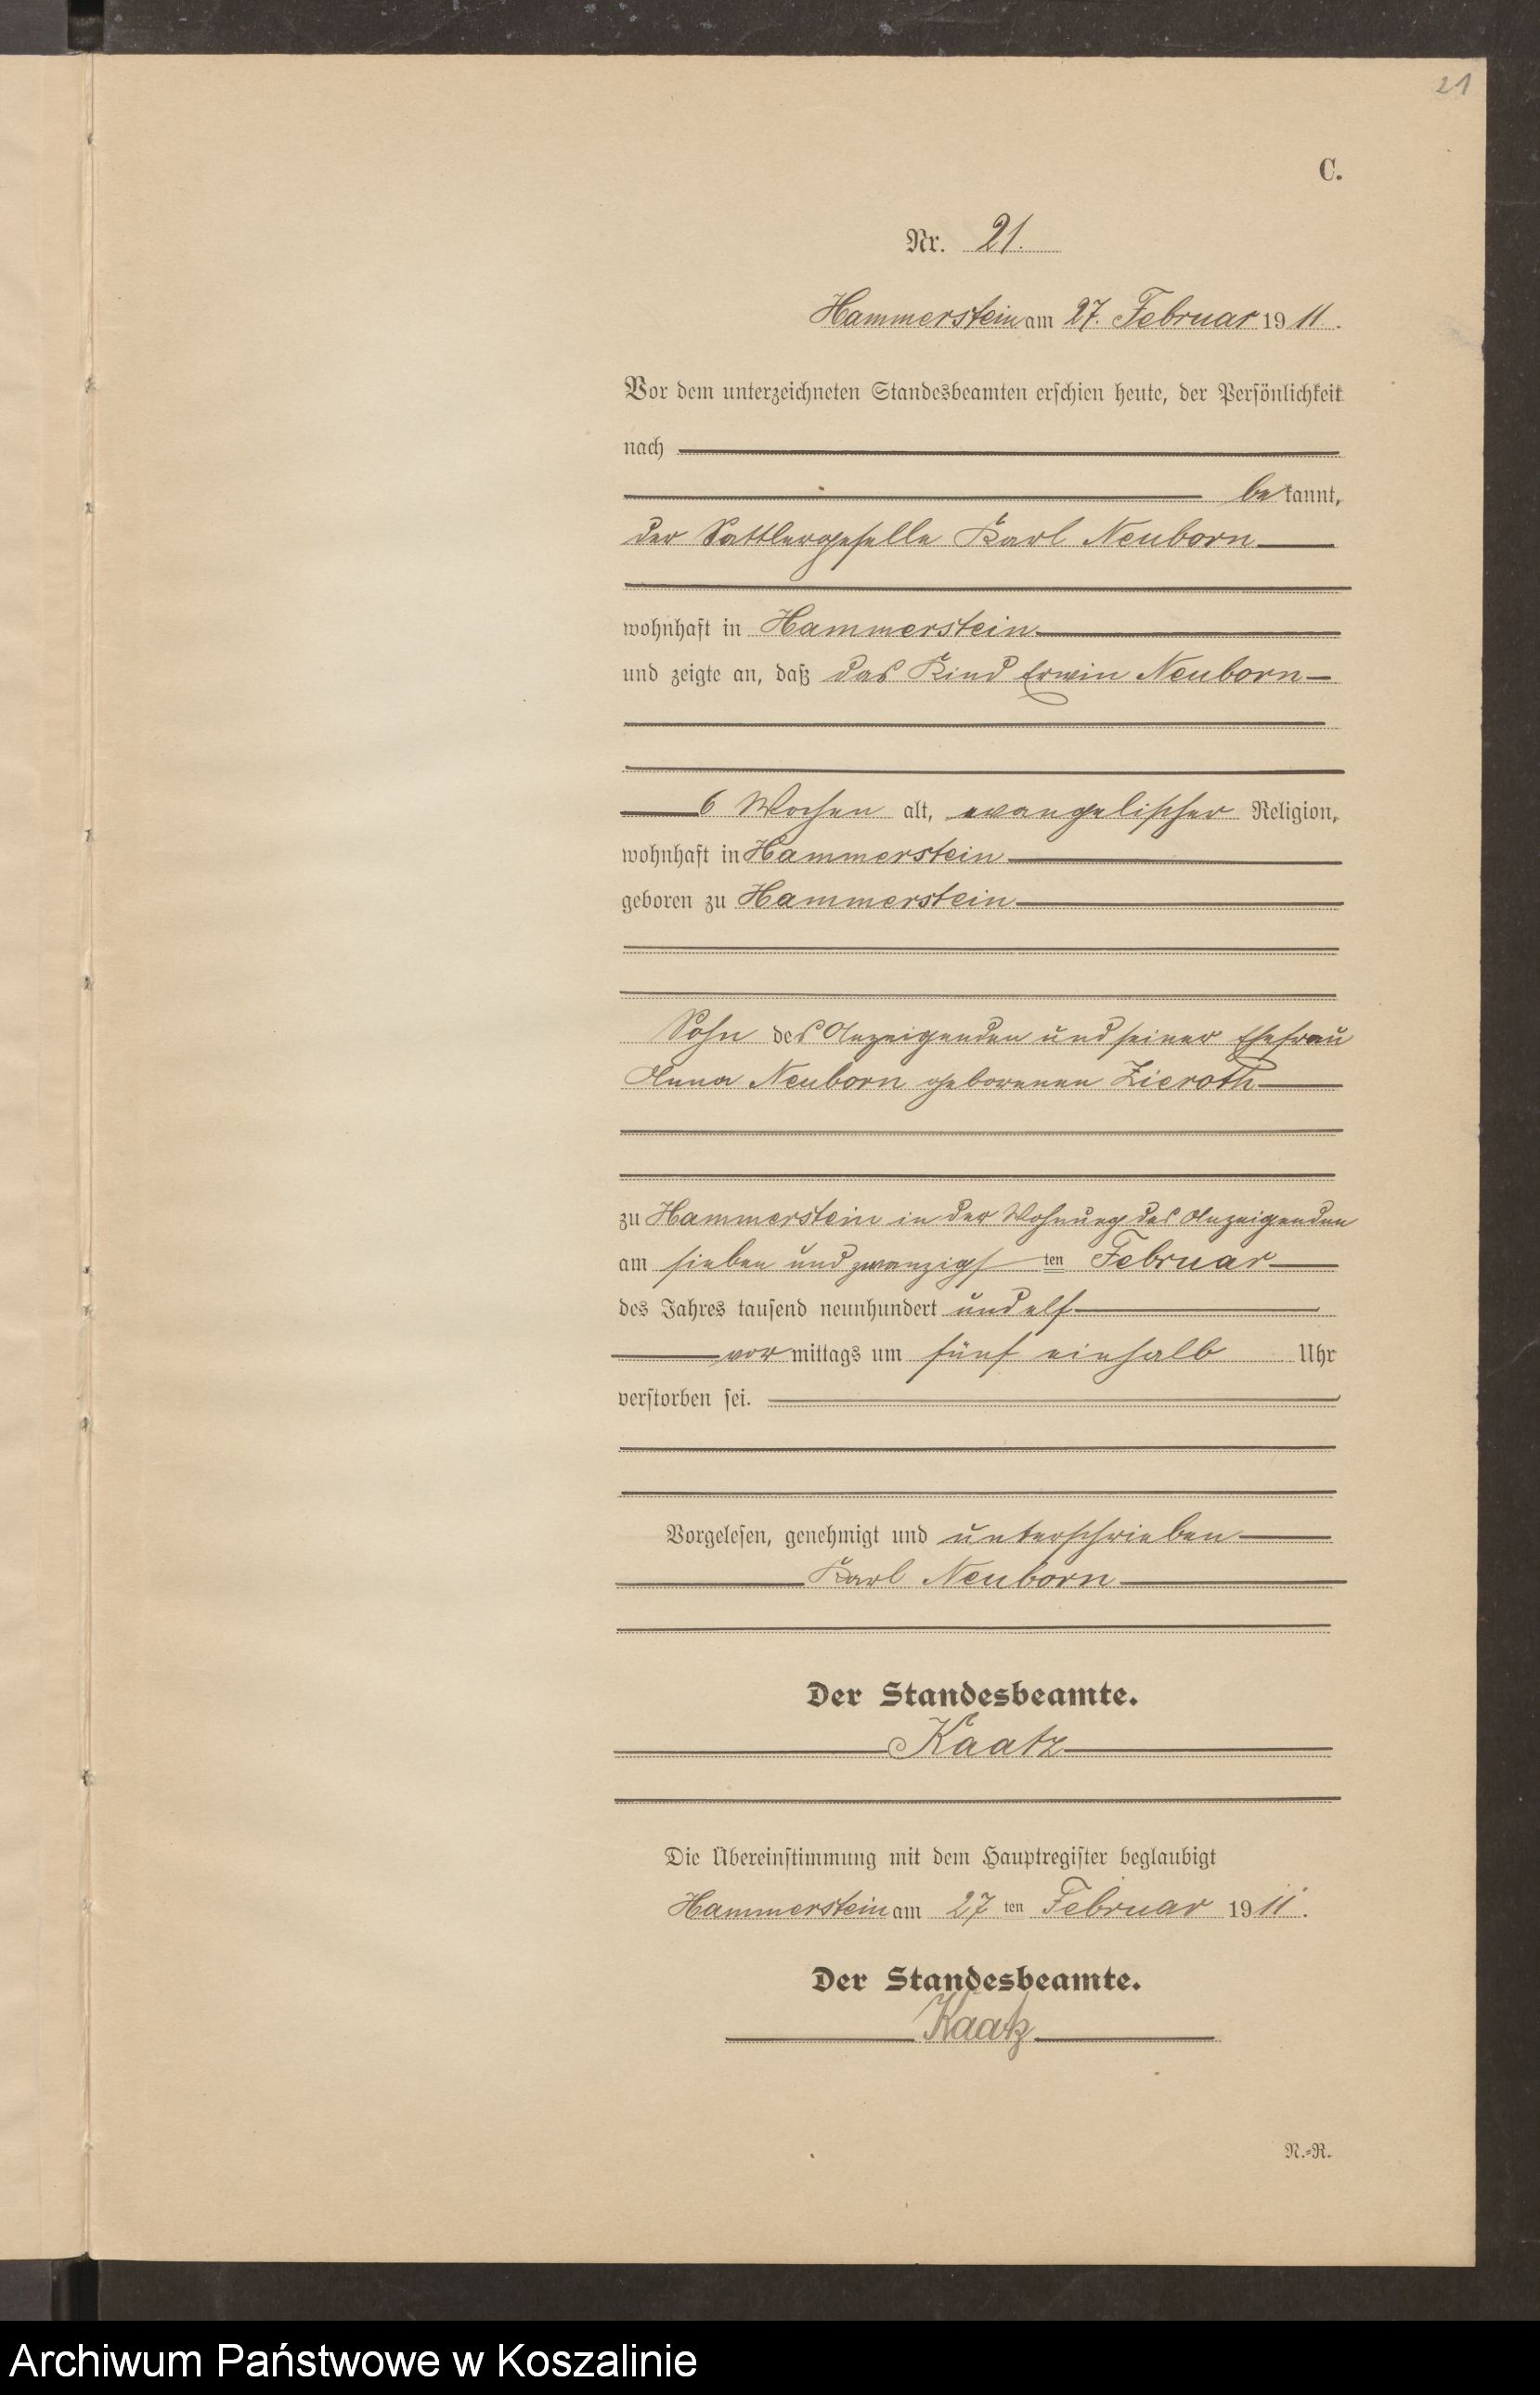 21
C.
Nr. 21.
Hammerstein am 27. Februar 1911.
Vor dem unterzeichneten Standesbeamten erschien heute, der Persönlichkeit
nach
bekannt,
der Sattlergeselle Karl Neuborn
wohnhaft in Hammerstein
und zeigte an, daß das Kind Erwin Neuborn
6 Wochen alt, evangelischer Religion,
wohnhaft in Hammerstein
geboren zu Hammerstein
Sohn des Anzeigenden und seiner Ehefrau
Anna Neuborn geborenen Zieroth
zu Hammerstein in der Wohnung des Anzeigenden
am sieben und zwanzigsten Februar
des Jahres tausend neunhundert und elf
vormittags um fünf einhalb Uhr
verstorben sei.
Vorgelesen, genehmigt und unterschrieben
Karl Neuborn
Der Standesbeamte.
Kaatz
Die Übereinstimmung mit dem Hauptregister beglaubigt
Hammerstein am 27ten Februar 1911.
Der Standesbeamte.
Kaatz
N.-R.
Archiwum Państwowe w Koszalinie